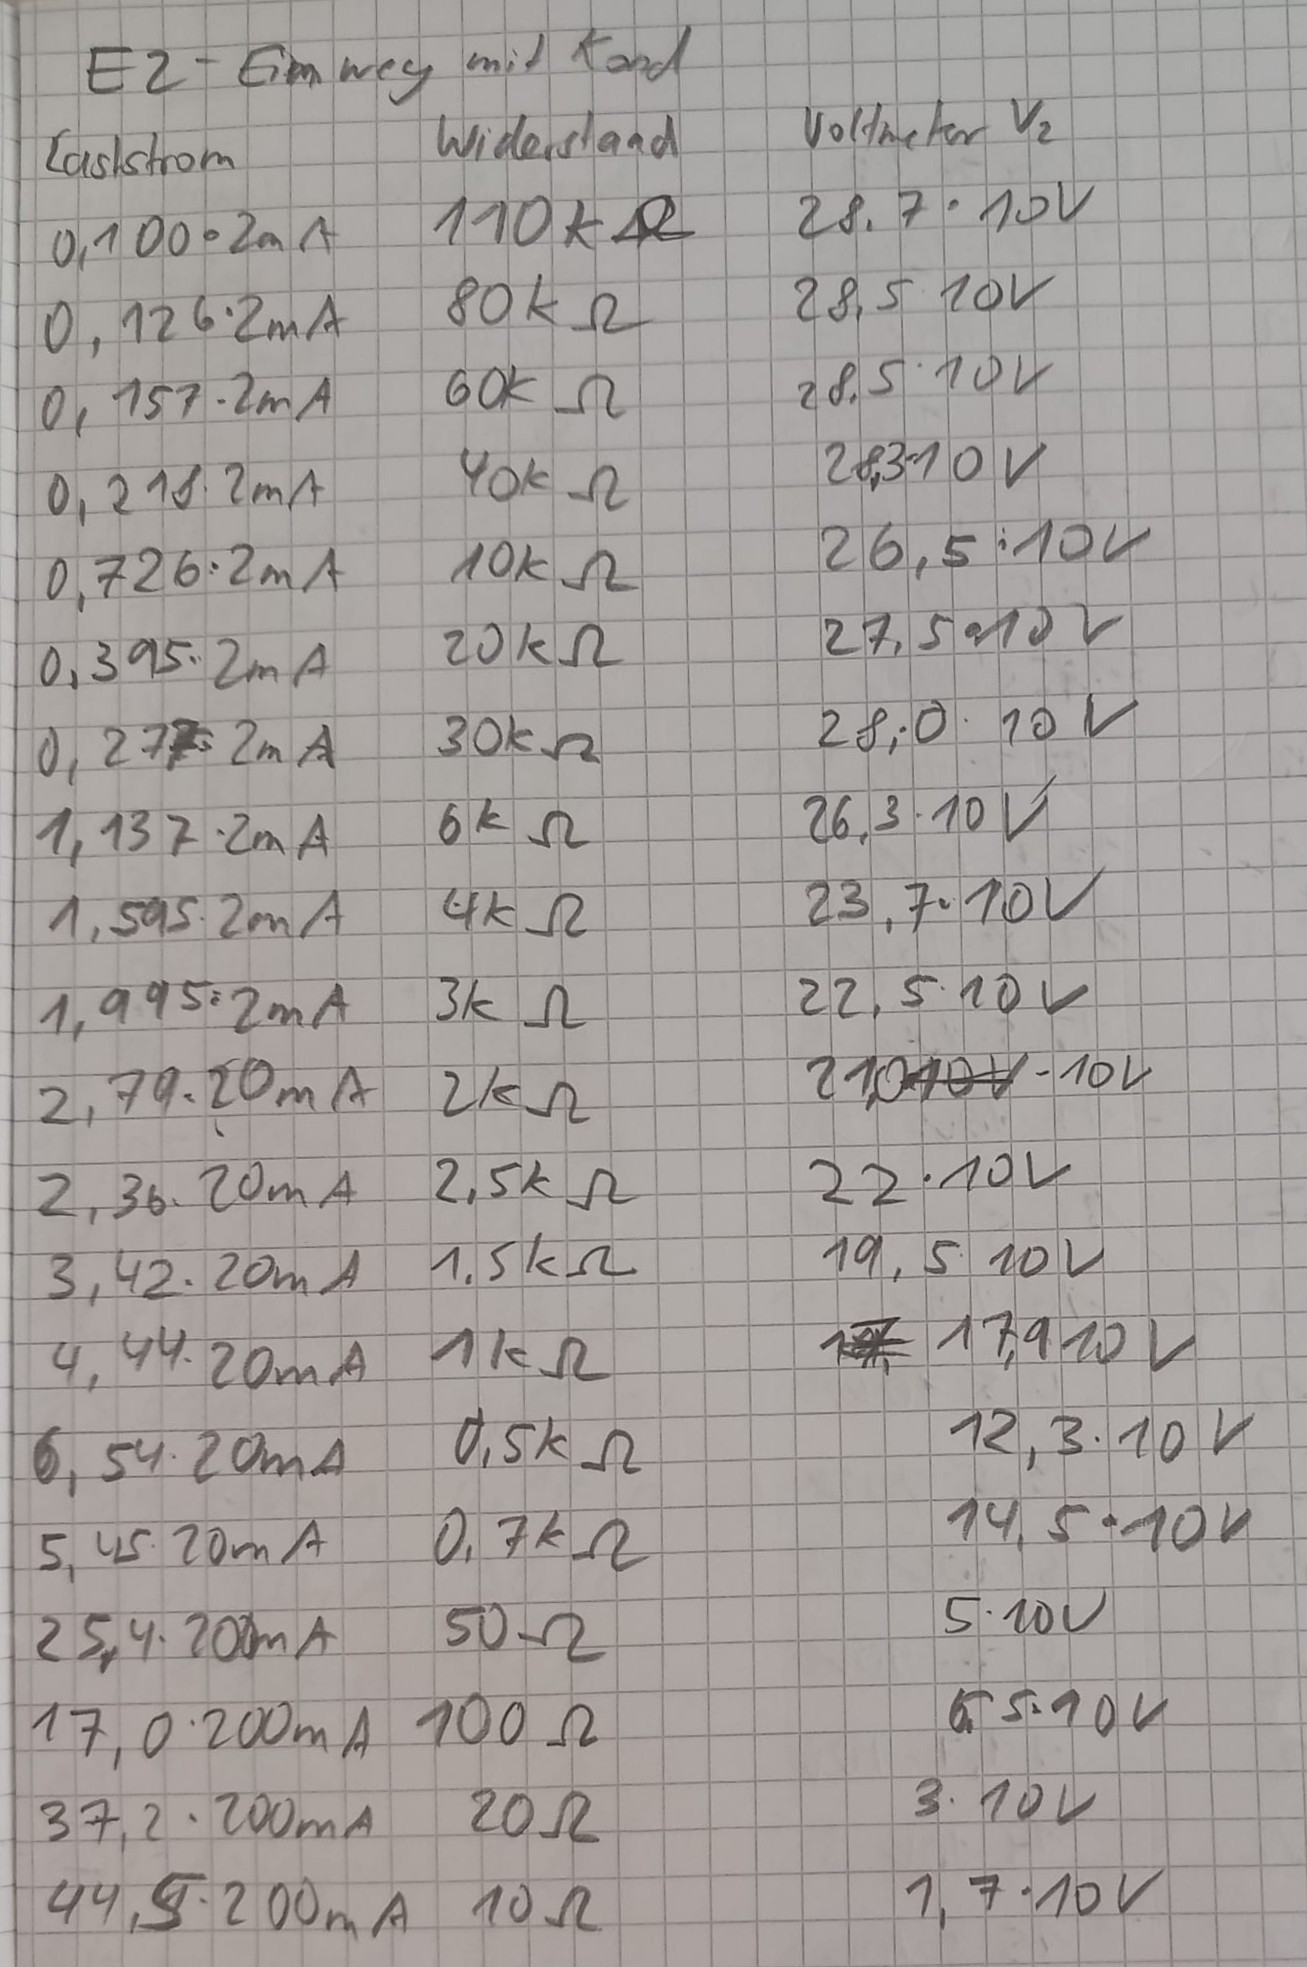 E2 - Einweg mit Kond
Laststrom Widerstand Voltmeter V2
0,100·2mA 110kΩ 28.7·10V
0,126·2mA 80kΩ 28,5·10V
0,157·2mA 60kΩ 28,5·10V
0,218·2mA 40kΩ 28,3·10V
0,726·2mA 10kΩ 26,5·10V
0,395·2mA 20kΩ 27,5·10V
0,277·2mA 30kΩ 28,0·10V
1,137·2mA 6kΩ 26,3·10V
1,595·2mA 4kΩ 23,7·10V
1,995·2mA 3kΩ 22,5·10V
2,79·20mA 2kΩ 21,0·10V
2,36·20mA 2,5kΩ 22·10V
3,42·20mA 1,5kΩ 19,5·10V
4,44·20mA 1kΩ 17,9·10V
6,54·20mA 0,5kΩ 12,3·10V
5,45·20mA 0,7kΩ 14,5·10V
25,4·200mA 50Ω 5·10V
17,0·200mA 100Ω 5·10V
37,2·200mA 20Ω 3·10V
44,5·200mA 10Ω 1,7·10V